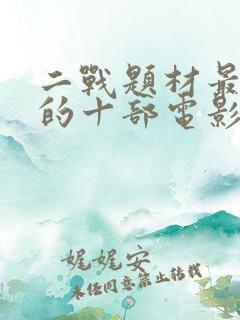 二戰題材最
的十部電影
娓娓安
未經同意禁止轉載